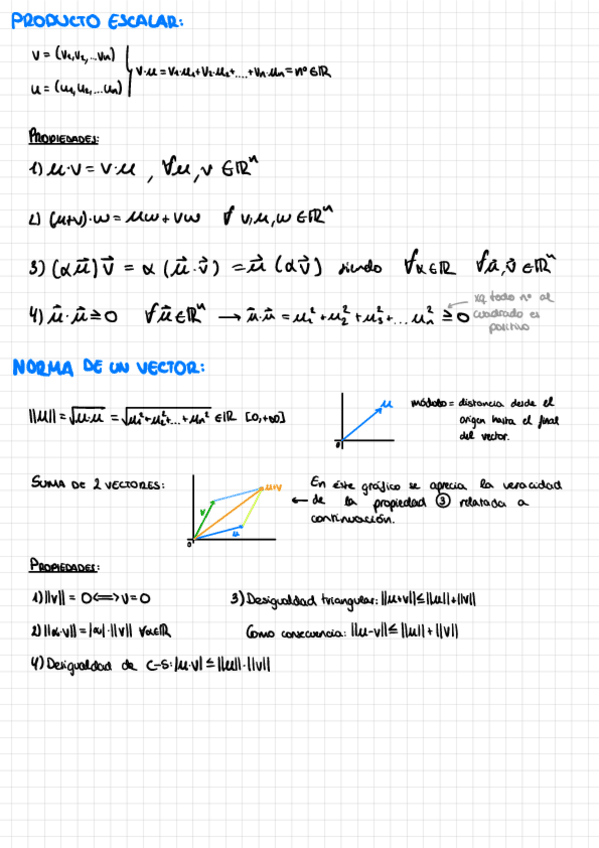 PRODUCTO ESCALAR:
v = (v₁,v₂,...vₙ)
u = (u₁,u₂,...uₙ)
v·u = v₁·u₁+v₂·u₂+....+vₙ·uₙ = nº ∈ ℝ
PROPIEDADES:
1) u·v = v·u , ∀u,v ∈ ℝⁿ
2) (u+v)·w = uw + vw ∀ v,u,w ∈ ℝⁿ
3) (α u⃗) v⃗ = α (u⃗·v⃗) = u⃗ (α v⃗) siendo ∀α ∈ ℝ ∀u⃗,v⃗ ∈ ℝⁿ
4) u⃗·u⃗ ≥ 0 ∀u⃗ ∈ ℝⁿ → u⃗·u⃗ = u₁² + u₂² + u₃² + ... uₙ² ≥ 0
xq todo nº al
cuadrado es
positivo
NORMA DE UN VECTOR:
||u|| = √u·u = √u₁²+u₂²+...+uₙ² ∈ ℝ [0,+∞]
u
0
módulo = distancia desde el
origen hasta el final
del vector.
SUMA DE 2 VECTORES:
u+v
v
u
0
En éste gráfico se aprecia la veracidad
← de la propiedad ③ relatada a
continuación.
PROPIEDADES:
1) ||v|| = 0 ⟺ v = 0
3) Desigualdad triangular: ||u+v|| ≤ ||u|| + ||v||
2) ||α·v|| = |α|·||v|| ∀α∈ℝ
Como consecuencia: ||u-v|| ≤ ||u|| + ||v||
4) Desigualdad de C-S: |u·v| ≤ ||u||·||v||